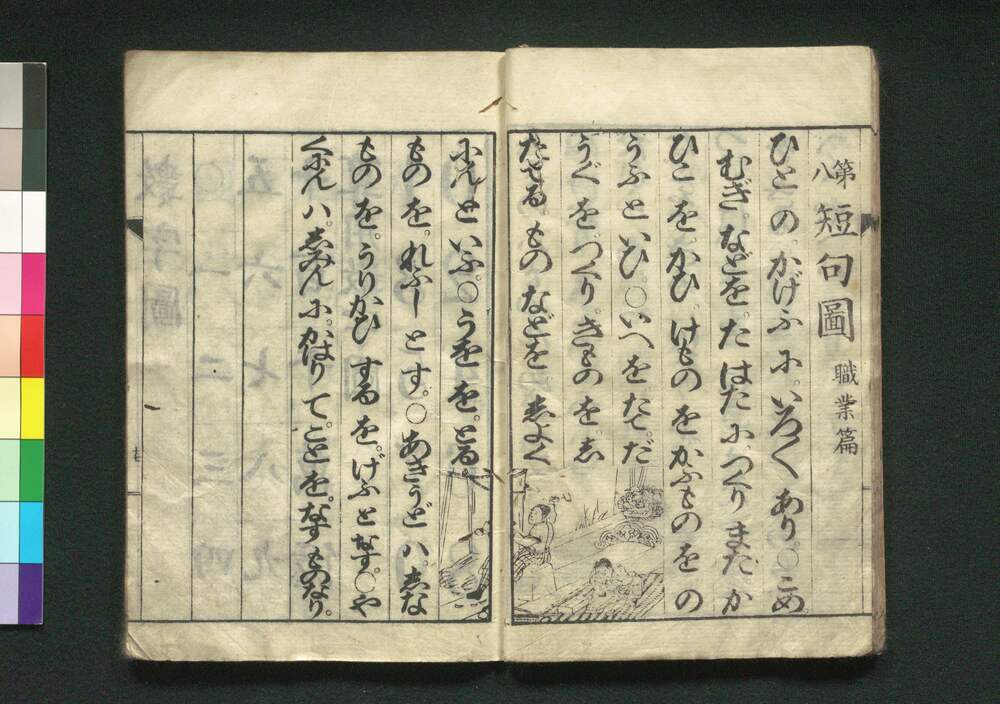 第八 短句圖 職業篇
ひとの。かげふに。いろ〱あり。〇こめ。
むぎ。などを。たはたに。つくりまたか
ひこをかひ。けものをかふものをの
うふといひ。〇いへをたてだ
うぐをつくり。きものをし
たてる。ものなどを。しよく
にんといふ。〇うをを。とる
ものを。れふしとす。〇あきうどハ。しな
ものを。うりかひするを。げふとなす。〇や
くにんハ。しみんに。かはりて。ことを。なすものなり。